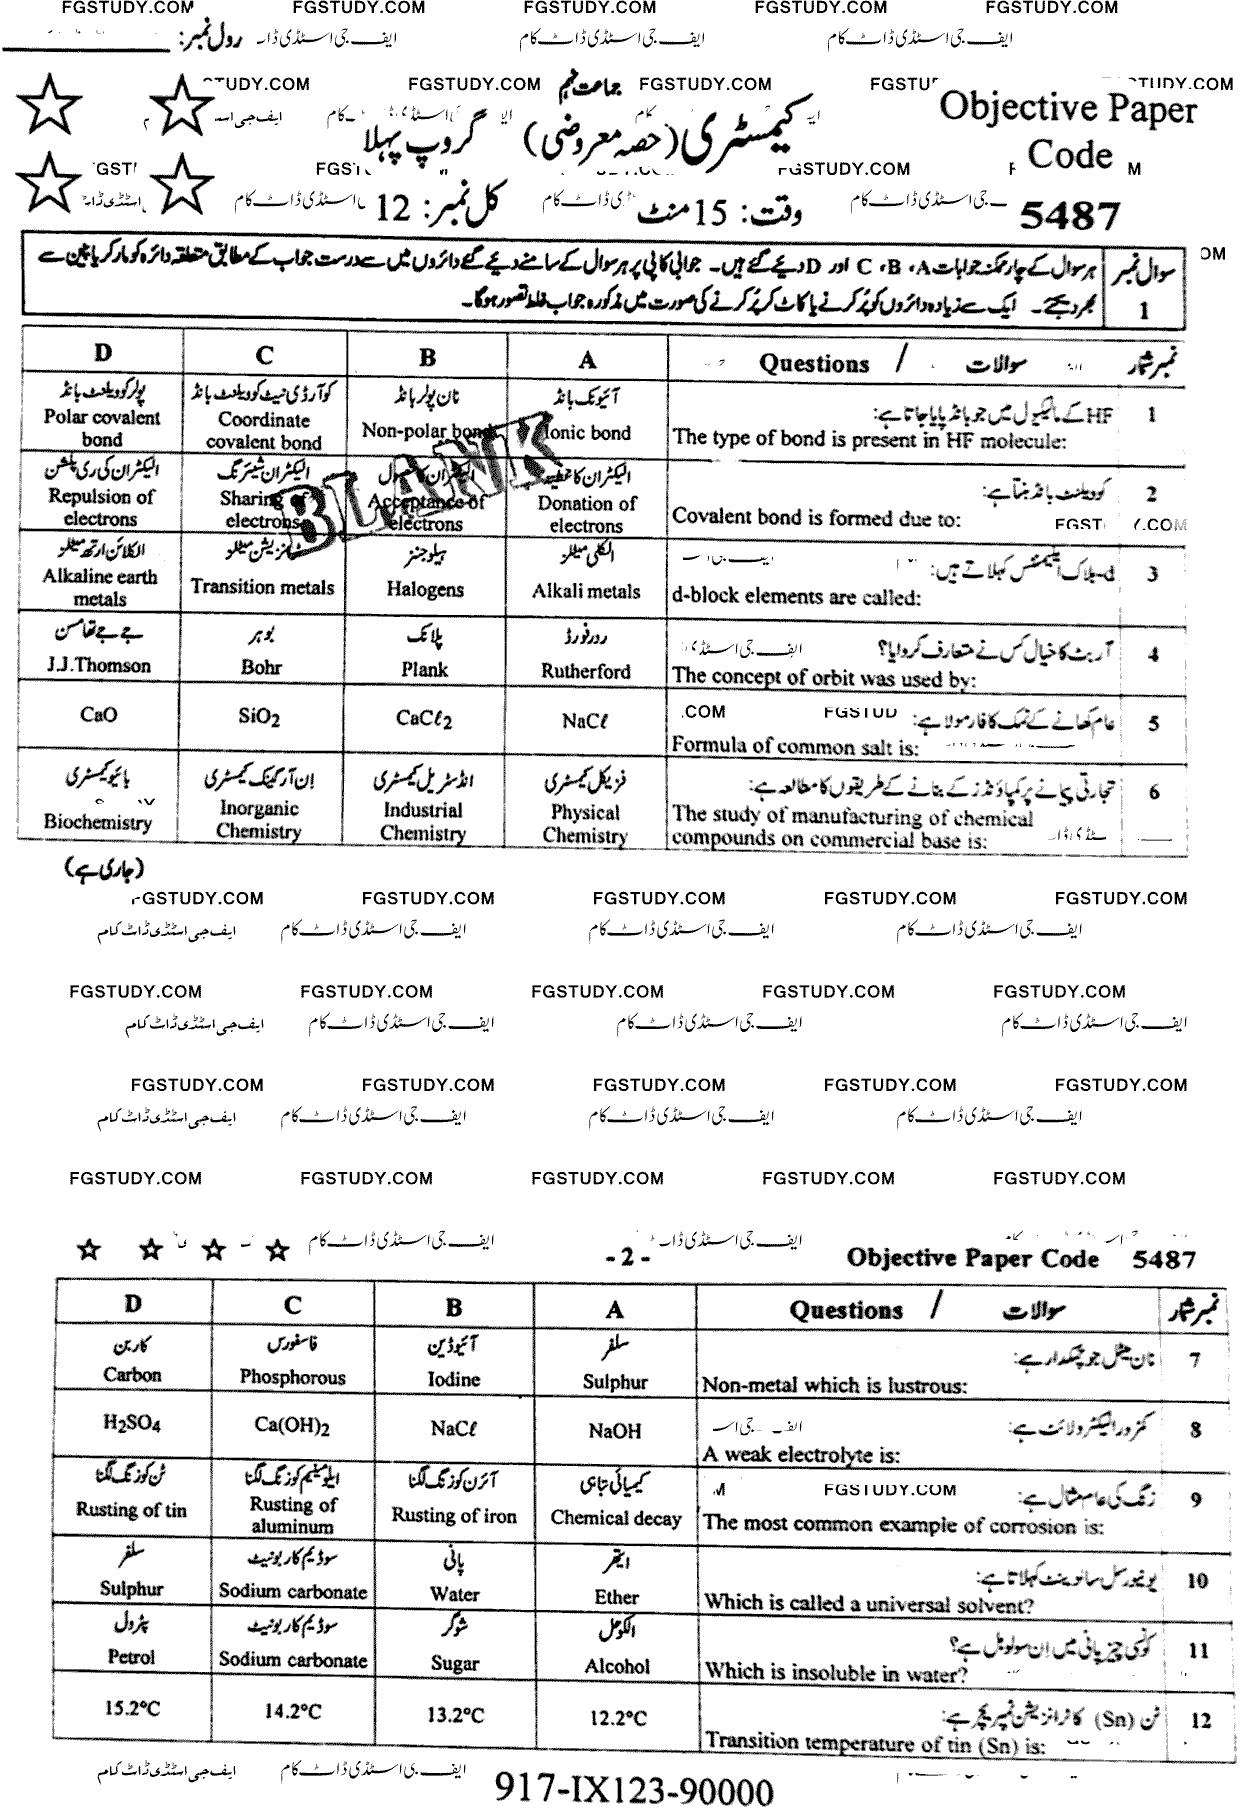 FGSTUDY.COM FGSTUDY.COM FGSTUDY.COM FGSTUDY.COM FGSTUDY.COM
رول نمبر:
ایف جی اسٹڈی ڈاٹ کام ایف جی اسٹڈی ڈاٹ کام
جماعت نہم
FGSTUDY.COM FGSTUDY.COM
Objective Paper
Code
5487
کیمسٹری (حصہ معروضی) گروپ پہلا
وقت: 15 منٹ کل نمبر: 12
سوال نمبر 1
ہر سوال کے چار ممکنہ جوابات A، B، C اور D دیئے گئے ہیں۔ جوابی کاپی پر ہر سوال کے سامنے دیئے گئے دائروں میں سے درست جواب کے مطابق متعلقہ دائرہ کو مارکر یا پین سے
بھر دیجئے۔ ایک سے زیادہ دائروں کو پُر کرنے یا کاٹ کر پُر کرنے کی صورت میں مذکورہ جواب غلط تصور ہوگا۔
نمبر شمار سوالات / Questions A B C D
1 HF کے مالیکیول میں جو بانڈ پایا جاتا ہے:
The type of bond is present in HF molecule:
آئیونک بانڈ
Ionic bond
نان پولر بانڈ
Non-polar bond
کوآرڈی نیٹ کوویلنٹ بانڈ
Coordinate
covalent bond
پولر کوویلنٹ بانڈ
Polar covalent
bond
BLANK
2 کوویلنٹ بانڈ بنتا ہے:
Covalent bond is formed due to:
الیکٹران کا عطیہ
Donation of
electrons
الیکٹران کا حصول
Acceptance of
electrons
الیکٹران شیئرنگ
Sharing of
electrons
الیکٹران کی ری پلشن
Repulsion of
electrons
3 d-بلاک ایلیمنٹس کہلاتے ہیں:
d-block elements are called:
الکلی میٹلز
Alkali metals
ہیلوجنز
Halogens
ٹرانزیشن میٹلز
Transition metals
الکلائن ارتھ میٹلز
Alkaline earth
metals
4 آربٹ کا خیال کس نے متعارف کروایا؟
The concept of orbit was used by:
ردرفورڈ
Rutherford
پلانک
Plank
بوہر
Bohr
جے جے تھامسن
J.J.Thomson
5 عام کھانے کے نمک کا فارمولا ہے:
Formula of common salt is:
NaCℓ
CaCℓ₂
SiO₂
CaO
6 تجارتی پیمانے پر کمپاؤنڈز کے بنانے کے طریقوں کا مطالعہ ہے:
The study of manufacturing of chemical
compounds on commercial base is:
فزیکل کیمسٹری
Physical
Chemistry
انڈسٹریل کیمسٹری
Industrial
Chemistry
اِن آرگینک کیمسٹری
Inorganic
Chemistry
بائیو کیمسٹری
Biochemistry
(جاری ہے)
FGSTUDY.COM FGSTUDY.COM FGSTUDY.COM FGSTUDY.COM
ایف جی اسٹڈی ڈاٹ کام ایف جی اسٹڈی ڈاٹ کام ایف جی اسٹڈی ڈاٹ کام ایف جی اسٹڈی ڈاٹ کام
FGSTUDY.COM FGSTUDY.COM FGSTUDY.COM FGSTUDY.COM FGSTUDY.COM
ایف جی اسٹڈی ڈاٹ کام ایف جی اسٹڈی ڈاٹ کام ایف جی اسٹڈی ڈاٹ کام ایف جی اسٹڈی ڈاٹ کام
FGSTUDY.COM FGSTUDY.COM FGSTUDY.COM FGSTUDY.COM FGSTUDY.COM
ایف جی اسٹڈی ڈاٹ کام ایف جی اسٹڈی ڈاٹ کام ایف جی اسٹڈی ڈاٹ کام ایف جی اسٹڈی ڈاٹ کام
FGSTUDY.COM FGSTUDY.COM FGSTUDY.COM FGSTUDY.COM FGSTUDY.COM
ایف جی اسٹڈی ڈاٹ کام
- 2 - Objective Paper Code 5487
نمبر شمار سوالات / Questions A B C D
7 نان میٹل جو چمکدار ہے:
Non-metal which is lustrous:
سلفر
Sulphur
آئیوڈین
Iodine
فاسفورس
Phosphorous
کاربن
Carbon
8 کمزور الیکٹرولائٹ ہے:
A weak electrolyte is:
NaOH
NaCℓ
Ca(OH)₂
H₂SO₄
9 زنگ کی عام مثال ہے:
FGSTUDY.COM
The most common example of corrosion is:
کیمیائی تباہی
Chemical decay
آئرن کو زنگ لگنا
Rusting of iron
ایلومینیم کو زنگ لگنا
Rusting of
aluminum
ٹن کو زنگ لگنا
Rusting of tin
10 یونیورسل سالوینٹ کہلاتا ہے:
Which is called a universal solvent?
ایتھر
Ether
پانی
Water
سوڈیم کاربونیٹ
Sodium carbonate
سلفر
Sulphur
11 کونسی چیز پانی میں اِن سولوبل ہے؟
Which is insoluble in water?
الکوحل
Alcohol
شوگر
Sugar
سوڈیم کاربونیٹ
Sodium carbonate
پٹرول
Petrol
12 ٹن (Sn) کا ٹرانزیشن ٹمپریچر ہے:
Transition temperature of tin (Sn) is:
12.2°C
13.2°C
14.2°C
15.2°C
ایف جی اسٹڈی ڈاٹ کام ایف جی اسٹڈی ڈاٹ کام
917-IX123-90000